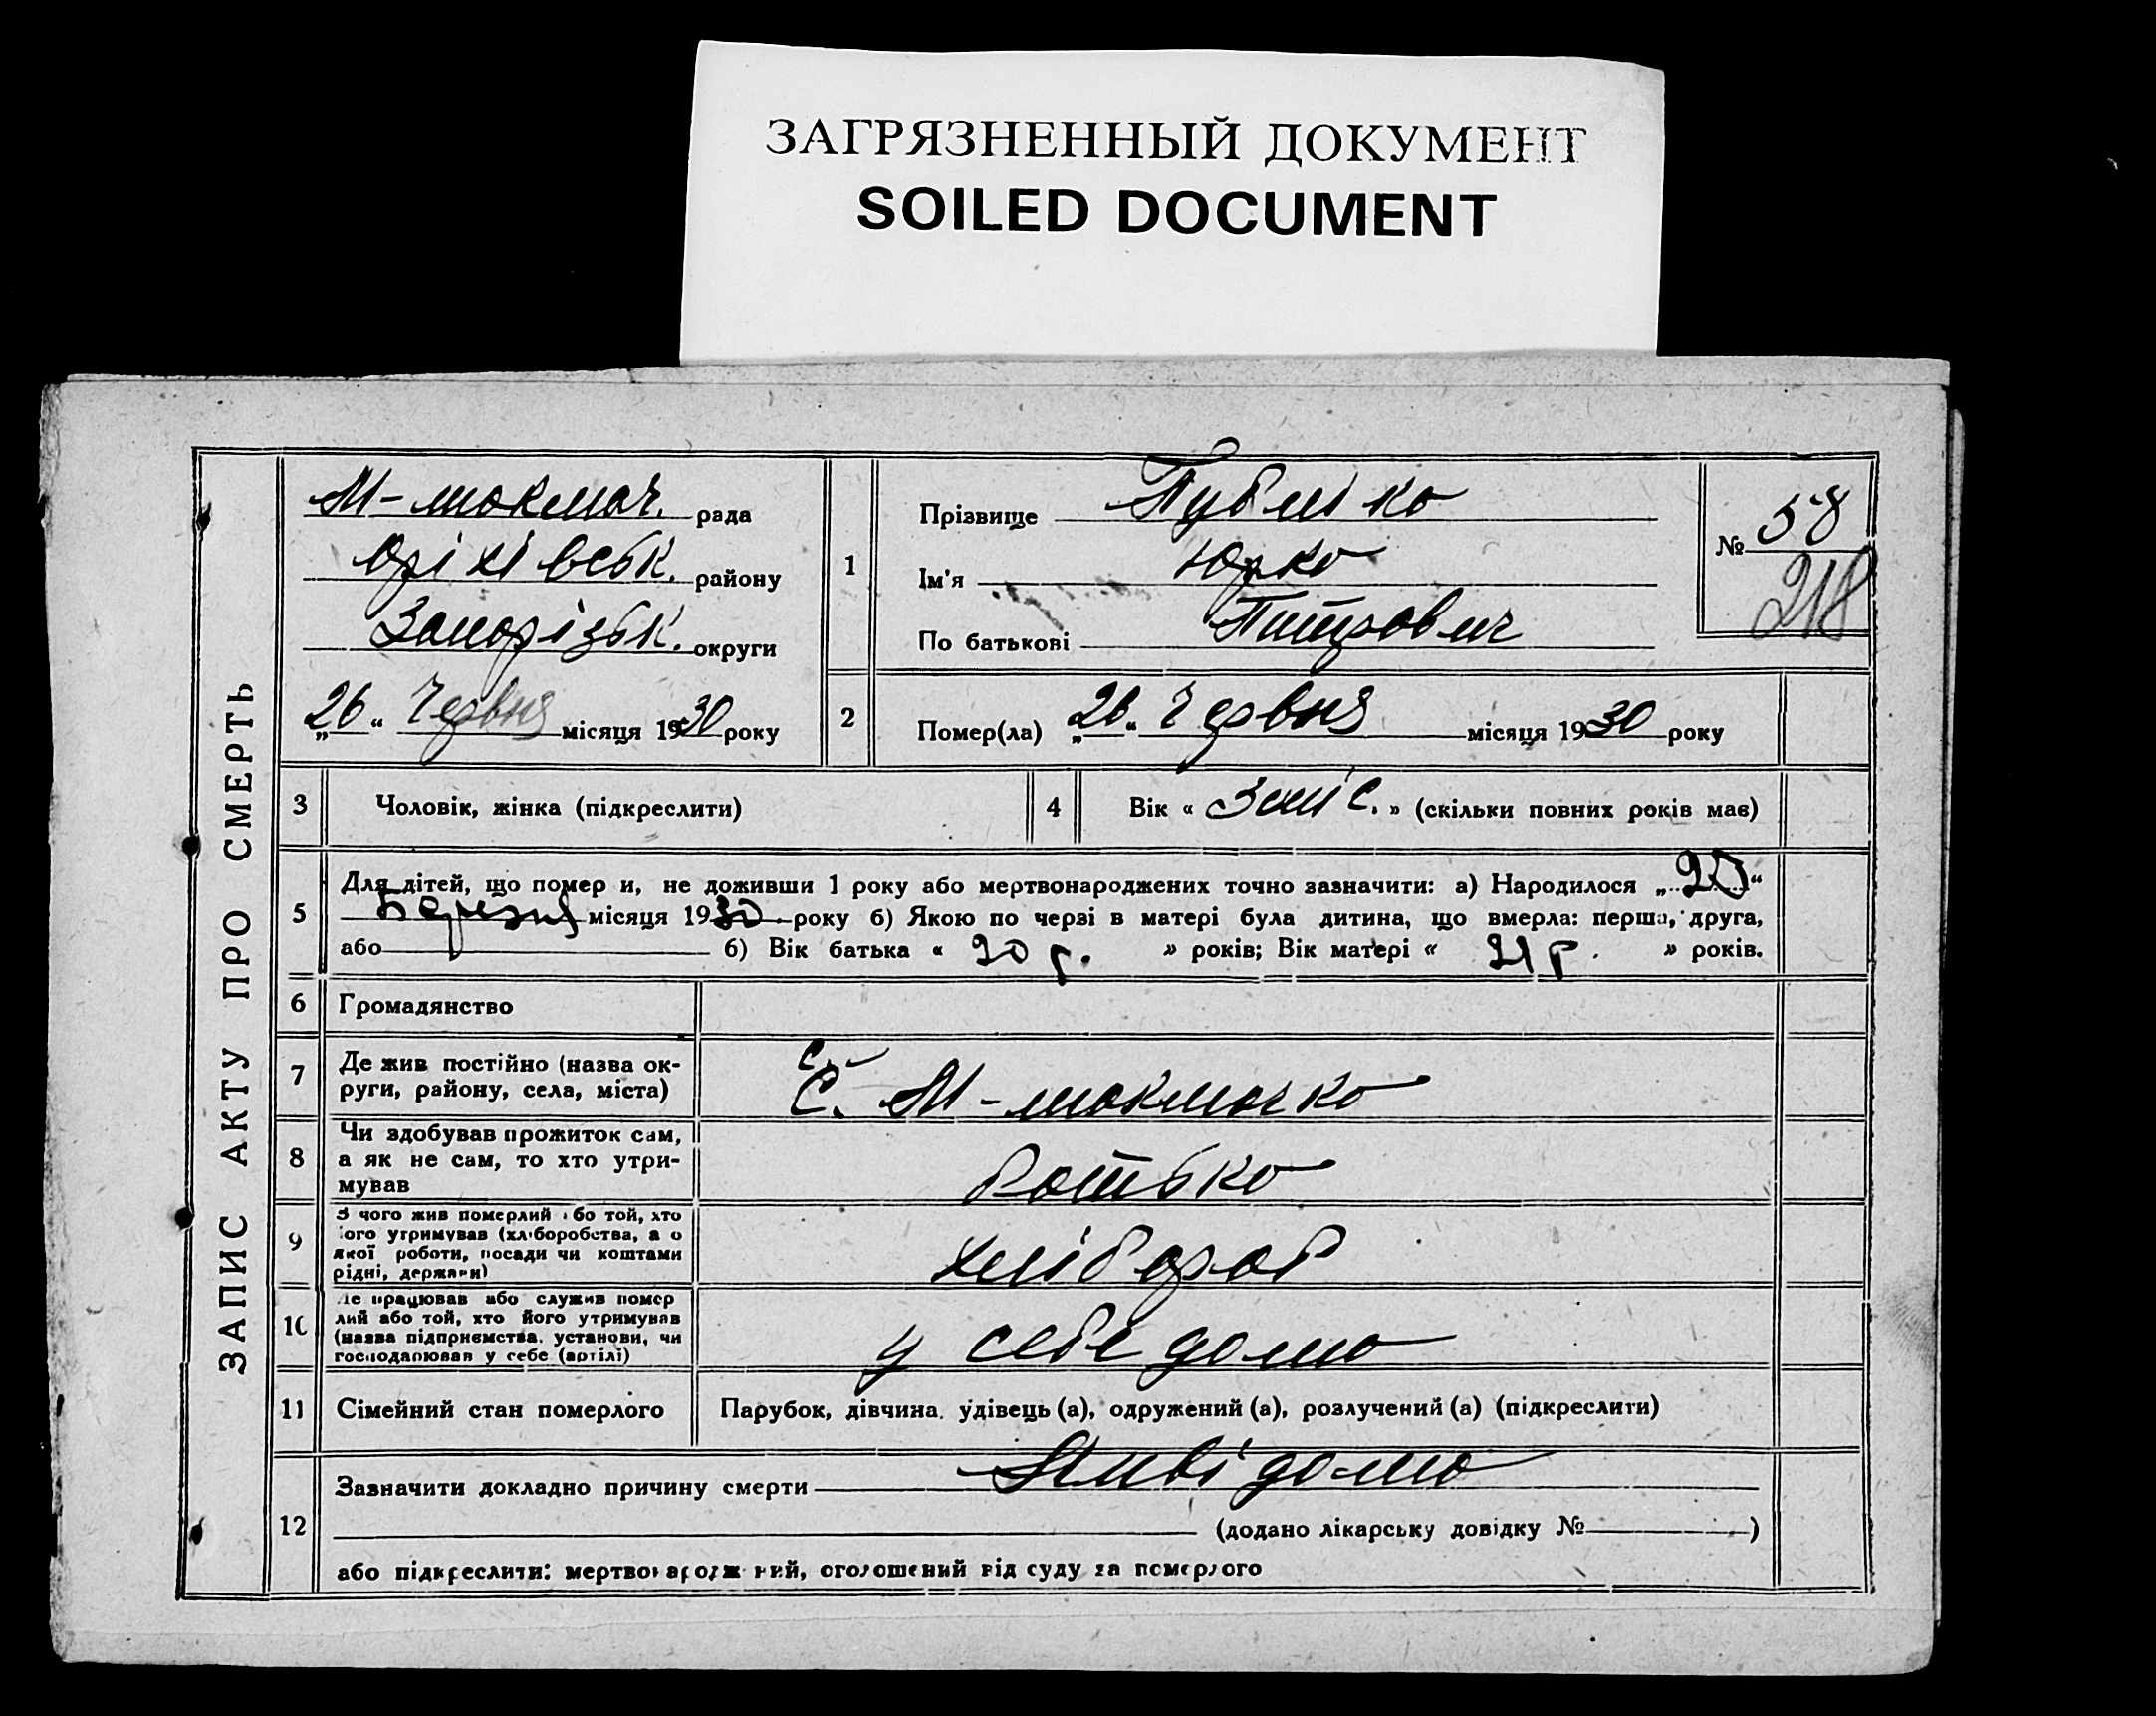 ЗАГРЯЗНЕННЫЙ ДОКУМЕНТ
SOILED DOCUMENT
ЗАПИС АКТУ ПРО СМЕРТЬ
М-токмач. рада
Оріхівськ. району
Запорізьк. округи
„26“ Червня місяця 1930 року
1
Прізвище
Ім'я Юрко
По батькові
№ 58
218
2
Помер(ла) „26“ Червня місяця 1930 року
3 Чоловік, жінка (підкреслити)
4 Вік « 3 міс. » (скільки повних років має)
5 Для дітей, що помер и, не доживши 1 року або мертвонароджених точно зазначити: а) Народилося „20“
Березня місяця 1930 року б) Якою по черзі в матері була дитина, що вмерла: перша, друга,
або б) Вік батька « 20 р. » років; Вік матері « 21 р. » років.
6 Громадянство
7 Де жив постійно (назва ок-
руги, району, села, міста)
С. М-токмачка
8 Чи здобував прожиток сам,
а як не сам, то хто утри-
мував
батько
9 З чого жив померлий або той, хто
його утримував (хліборобства, а о
якої роботи, посади чи коштами
рідні, держави)
хлібороб
10 Де працював або служив помер
лий або той, хто його утримував
(назва підприємства, установи, чи
господарював у себе (артілі)
у себе дома
11 Сімейний стан померлого
Парубок, дівчина, удівець (а), одружений (а), розлучений (а) (підкреслити)
12 Зазначити докладно причину смерти
(додано лікарську довідку № )
або підкреслити: мертвонароджений, оголошений від суду за померлого